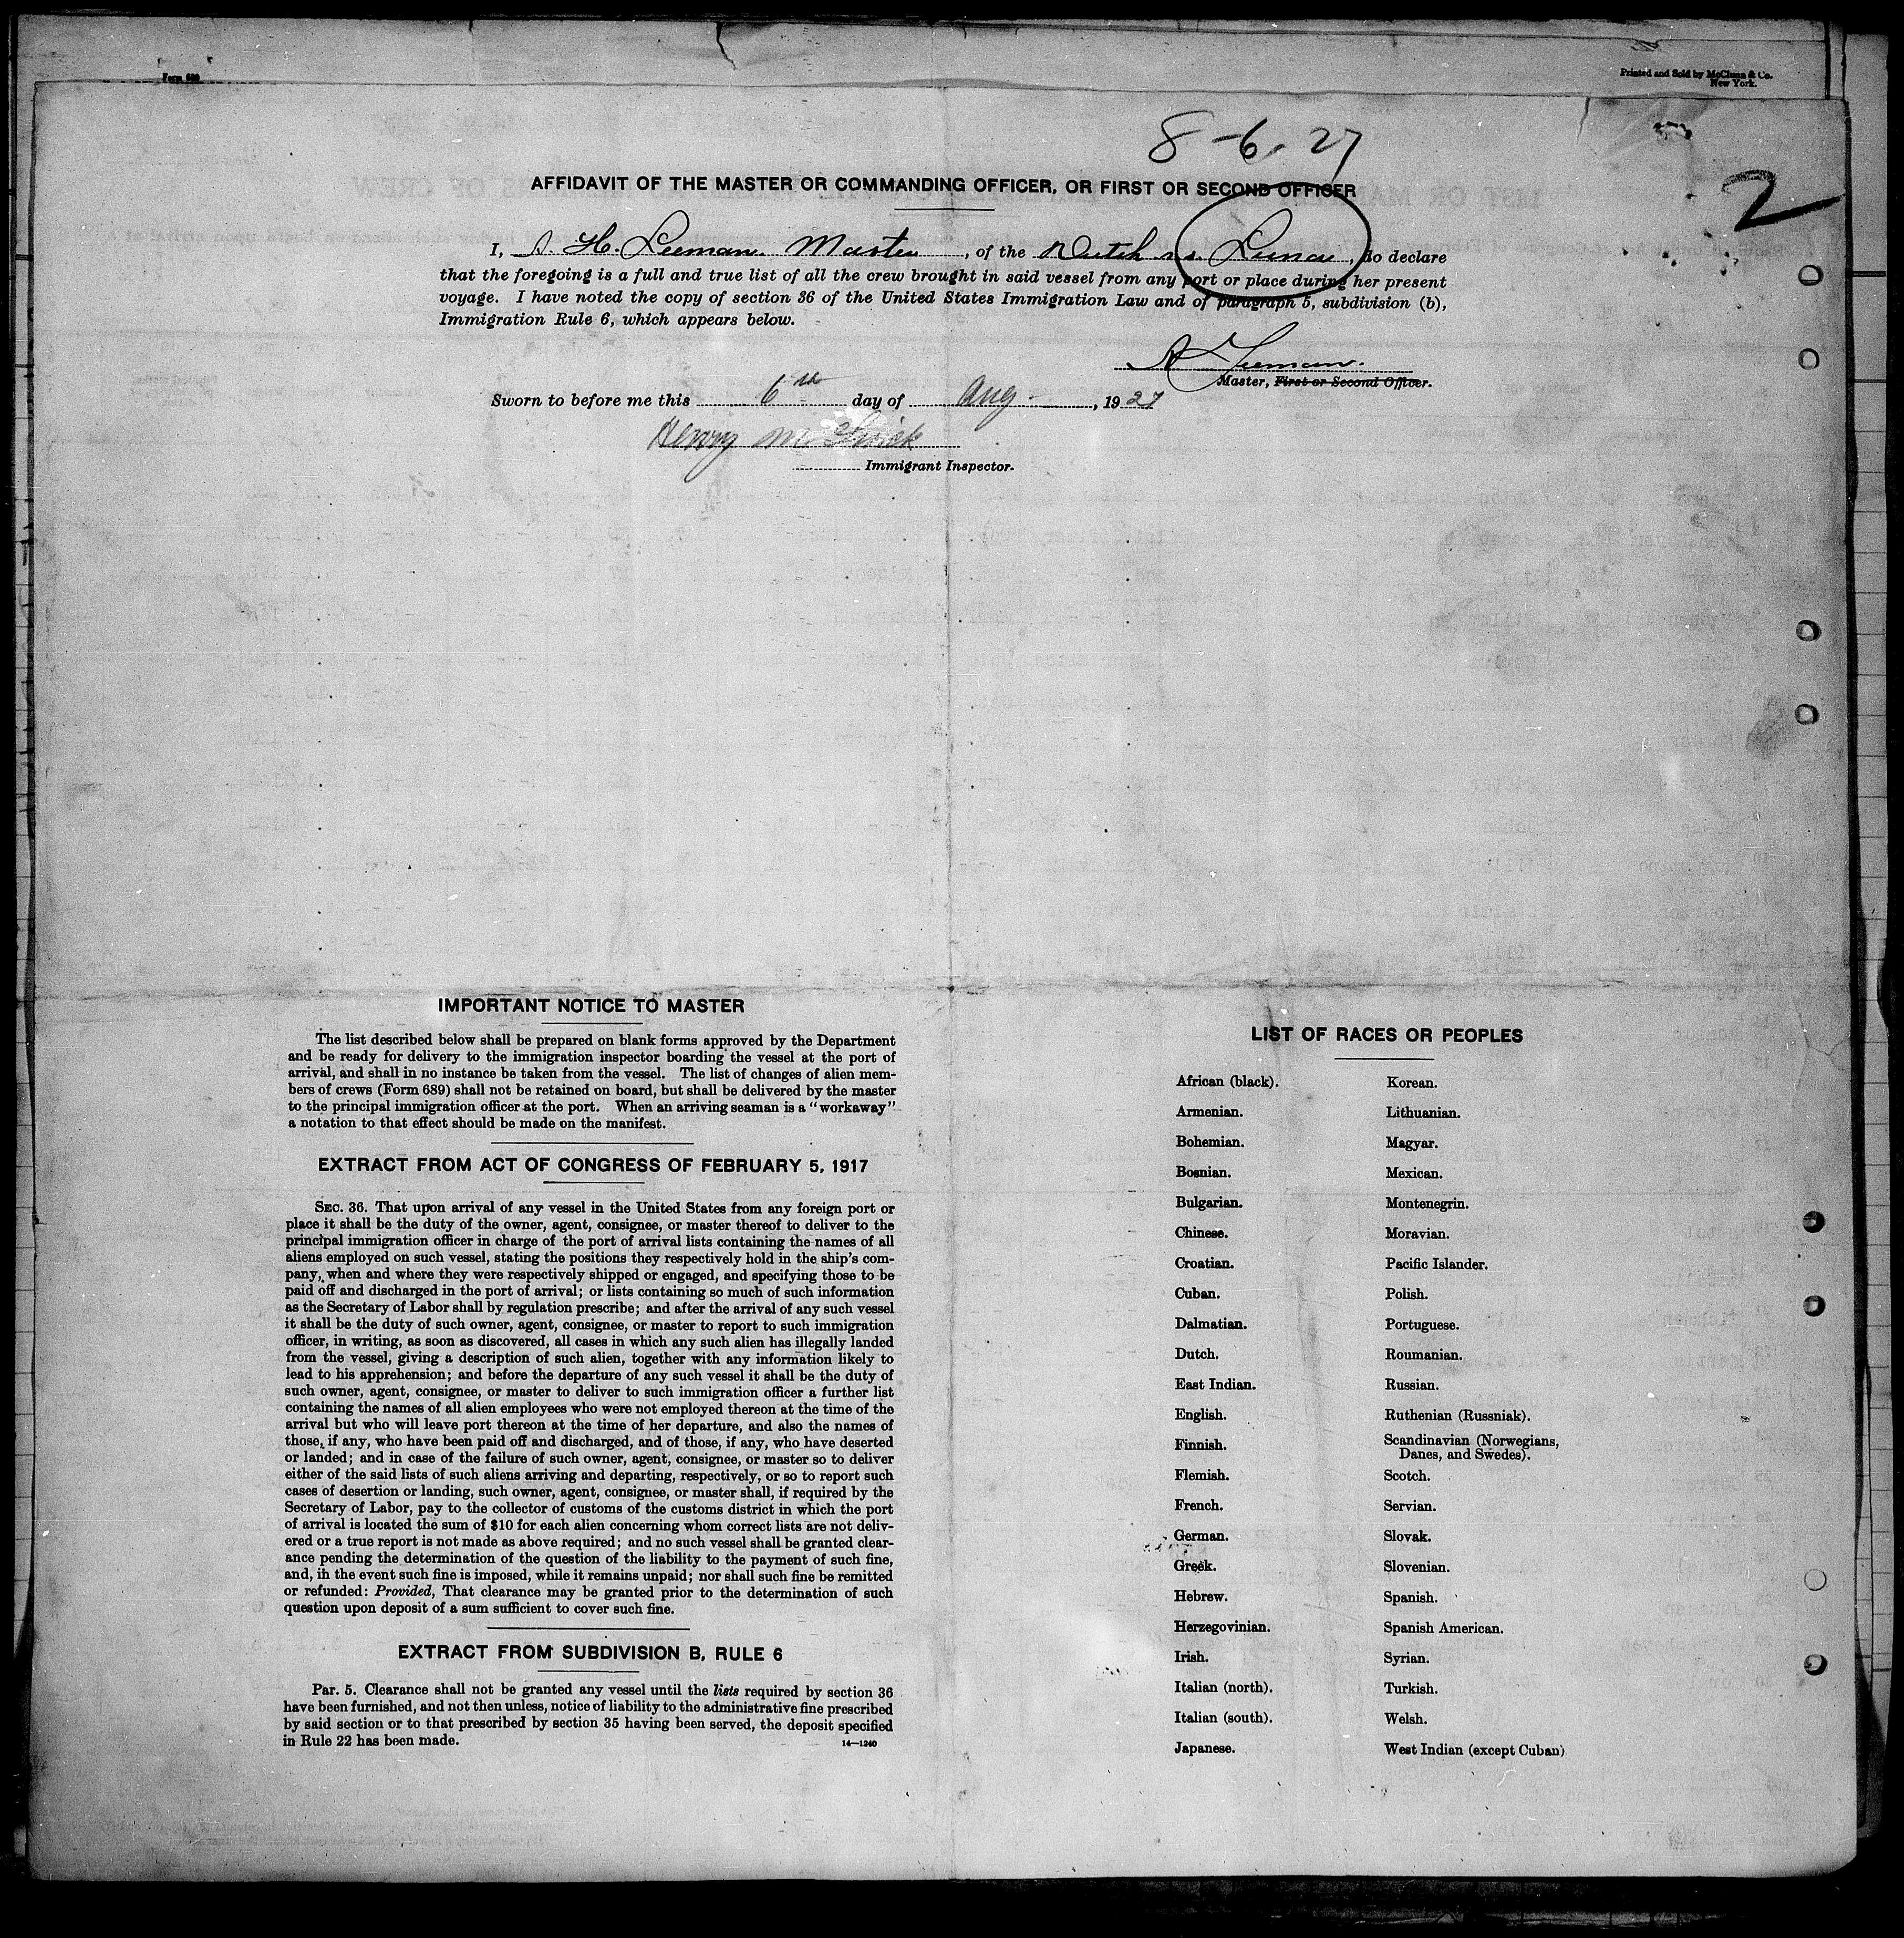 Form 689
Printed and Sold by McClunn & Co.
New York.
8-6-27
2
AFFIDAVIT OF THE MASTER OR COMMANDING OFFICER, OR FIRST OR SECOND OFFICER
I, A. H. Leeman. Master, of the Dutch s.s. Luna, do declare
that the foregoing is a full and true list of all the crew brought in said vessel from any port or place during her present
voyage. I have noted the copy of section 36 of the United States Immigration Law and of paragraph 5, subdivision (b),
Immigration Rule 6, which appears below.
A Leeman.
Master, First or Second Officer.
Sworn to before me this 6th day of Aug., 1927
Henry
Immigrant Inspector.
IMPORTANT NOTICE TO MASTER
The list described below shall be prepared on blank forms approved by the Department
and be ready for delivery to the immigration inspector boarding the vessel at the port of
arrival, and shall in no instance be taken from the vessel. The list of changes of alien mem-
bers of crews (Form 689) shall not be retained on board, but shall be delivered by the master
to the principal immigration officer at the port. When an arriving seaman is a "workaway"
a notation to that effect should be made on the manifest.
EXTRACT FROM ACT OF CONGRESS OF FEBRUARY 5, 1917
SEC. 36. That upon arrival of any vessel in the United States from any foreign port or
place it shall be the duty of the owner, agent, consignee, or master thereof to deliver to the
principal immigration officer in charge of the port of arrival lists containing the names of all
aliens employed on such vessel, stating the positions they respectively hold in the ship's com-
pany, when and where they were respectively shipped or engaged, and specifying those to be
paid off and discharged in the port of arrival; or lists containing so much of such information
as the Secretary of Labor shall by regulation prescribe; and after the arrival of any such vessel
it shall be the duty of such owner, agent, consignee, or master to report to such immigration
officer, in writing, as soon as discovered, all cases in which any such alien has illegally landed
from the vessel, giving a description of such alien, together with any information likely to
lead to his apprehension; and before the departure of any such vessel it shall be the duty of
such owner, agent, consignee, or master to deliver to such immigration officer a further list
containing the names of all alien employees who were not employed thereon at the time of the
arrival but who will leave port thereon at the time of her departure, and also the names of
those, if any, who have been paid off and discharged, and of those, if any, who have deserted
or landed; and in case of the failure of such owner, agent, consignee, or master so to deliver
either of the said lists of such aliens arriving and departing, respectively, or so to report such
cases of desertion or landing, such owner, agent, consignee, or master shall, if required by the
Secretary of Labor, pay to the collector of customs of the customs district in which the port
of arrival is located the sum of $10 for each alien concerning whom correct lists are not deliv-
ered or a true report is not made as above required; and no such vessel shall be granted clear-
ance pending the determination of the question of the liability to the payment of such fine,
and, in the event such fine is imposed, while it remains unpaid; nor shall such fine be remitted
or refunded: Provided, That clearance may be granted prior to the determination of such
question upon deposit of a sum sufficient to cover such fine.
EXTRACT FROM SUBDIVISION B, RULE 6
Par. 5. Clearance shall not be granted any vessel until the lists required by section 36
have been furnished, and not then unless, notice of liability to the administrative fine prescribed
by said section or to that prescribed by section 35 having been served, the deposit specified
in Rule 22 has been made.
14—1240
LIST OF RACES OR PEOPLES
African (black).
Armenian.
Bohemian.
Bosnian.
Bulgarian.
Chinese.
Croatian.
Cuban.
Dalmatian.
Dutch.
East Indian.
English.
Finnish.
Flemish.
French.
German.
Greek.
Hebrew.
Herzegovinian.
Irish.
Italian (north).
Italian (south).
Japanese.
Korean.
Lithuanian.
Magyar.
Mexican.
Montenegrin.
Moravian.
Pacific Islander.
Polish.
Portuguese.
Roumanian.
Russian.
Ruthenian (Russniak).
Scandinavian (Norwegians,
Danes, and Swedes).
Scotch.
Servian.
Slovak.
Slovenian.
Spanish.
Spanish American.
Syrian.
Turkish.
Welsh.
West Indian (except Cuban)